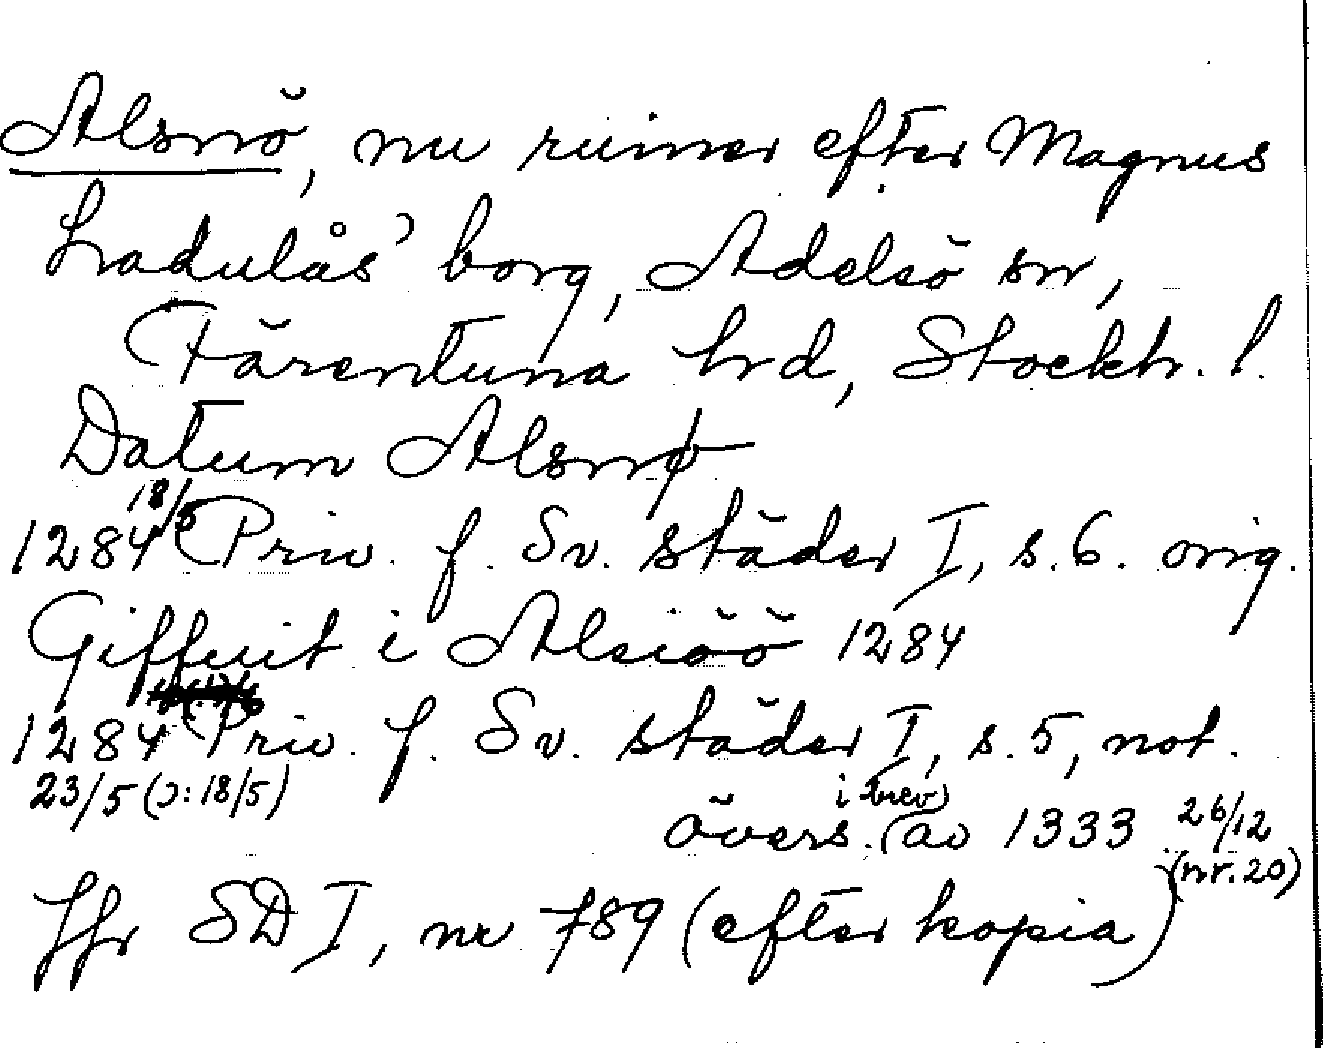 Alsnö, nu ruiner efter Magnus
Ladulås' borg, Adelsö sn,
Färentuna hrd, Stockh. l.
Datum Alsnø
1284 18/5 Priv. f. Sv. städer I, s. 6. orig.
Giffuit i Alsiöö 1284
1284 Priv. f. Sv. städer I, s. 5, not.
23/5 (ɔ: 18/5)
övers. (i brev) av 1333 26/12
(nr. 20)
Jfr SD I, nr 789 (efter kopia)